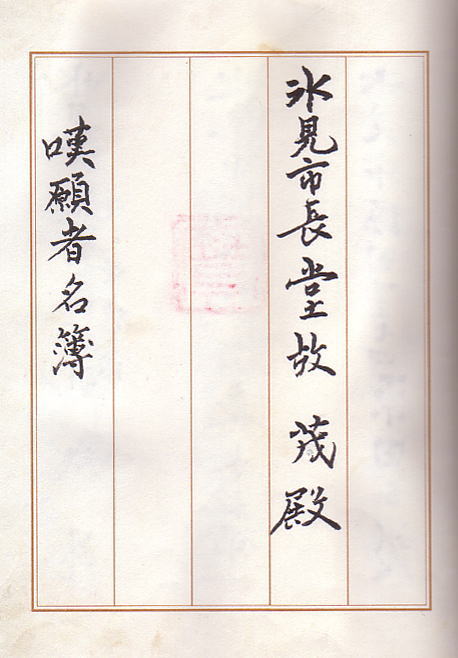 氷見市長堂故 茂殿
嘆願者名簿